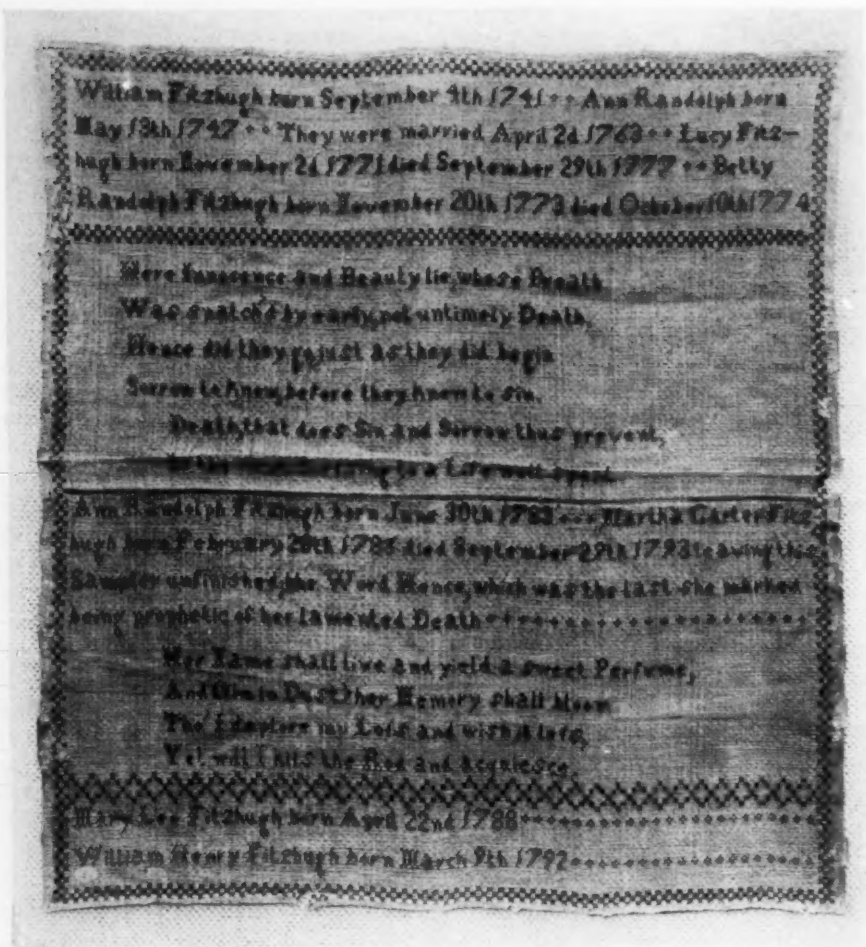 William Fitzhugh born September 4th 1741 ++ Ann Randolph born
May 13th 1747 ++ They were married April 2d 1763 ++ Lucy Fitz-
hugh born November 2d 1771 died September 29th 1777 ++ Betty
Randolph Fitzhugh born November 20th 1773 died October 10th 1774
Here Innocence and Beauty lie, whose Breath
Was snatch'd by early, not untimely Death.
Hence did they go, just as they did begin
Sorrow to know, before they knew to sin.
Death, that does Sin and Sorrow thus prevent,
Is the to a Life well spent.
Ann Randolph Fitzhugh born June 30th 1783 +++ Martha Carter Fitz
hugh born February 20th died September 29th 1793 leaving this
Sampler unfinished, the Word Hence, which was the last she marked
being prophetic of her lamented Death
Her Name shall live and yield a sweet Perfume,
And tho in Dust, her Memory shall bloom
Tho' I deplore my Loss and wish it less,
Yet will I kiss the Rod and acquiesce.
Mary Lee Fitzhugh born April 22nd 1788
William Henry Fitzhugh born March 9th 1792